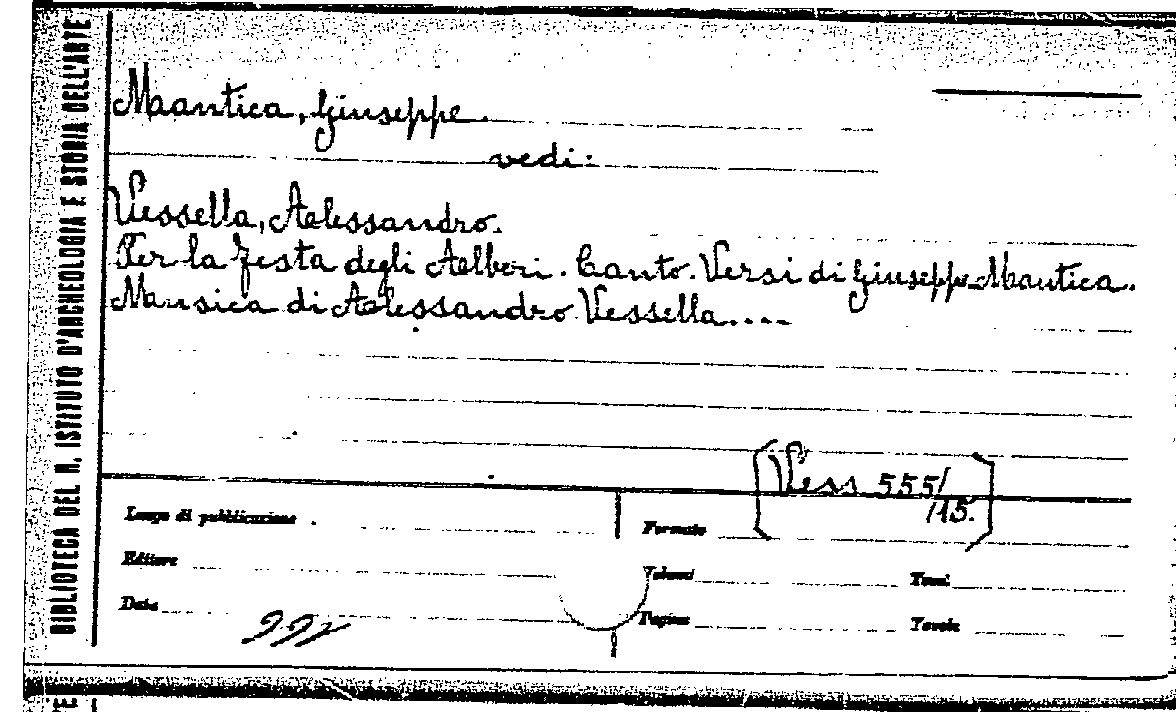 BIBLIOTECA DEL R. ISTITUTO D'ARCHEOLOGIA E STORIA DELL'ARTE
Mantica, Giuseppe.
vedi:
Vessella, Alessandro.
Per la festa degli Alberi. Canto. Versi di Giuseppe Mantica.
Musica di Alessandro Vessella....
[Vess. 555/
/15.]
Luogo di pubblicazione
Formato
Editore
Volumi
Tomi
Data
Pagine
Tavole
TE